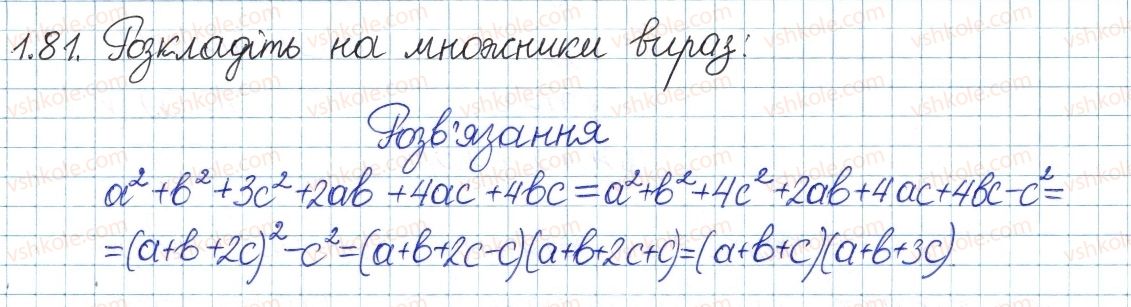 1.81. Розкладіть на множники вираз:
Розв'язання
a²+b²+3c²+2ab+4ac+4bc=a²+b²+4c²+2ab+4ac+4bc-c²=
=(a+b+2c)²-c²=(a+b+2c-c)(a+b+2c+c)=(a+b+c)(a+b+3c)